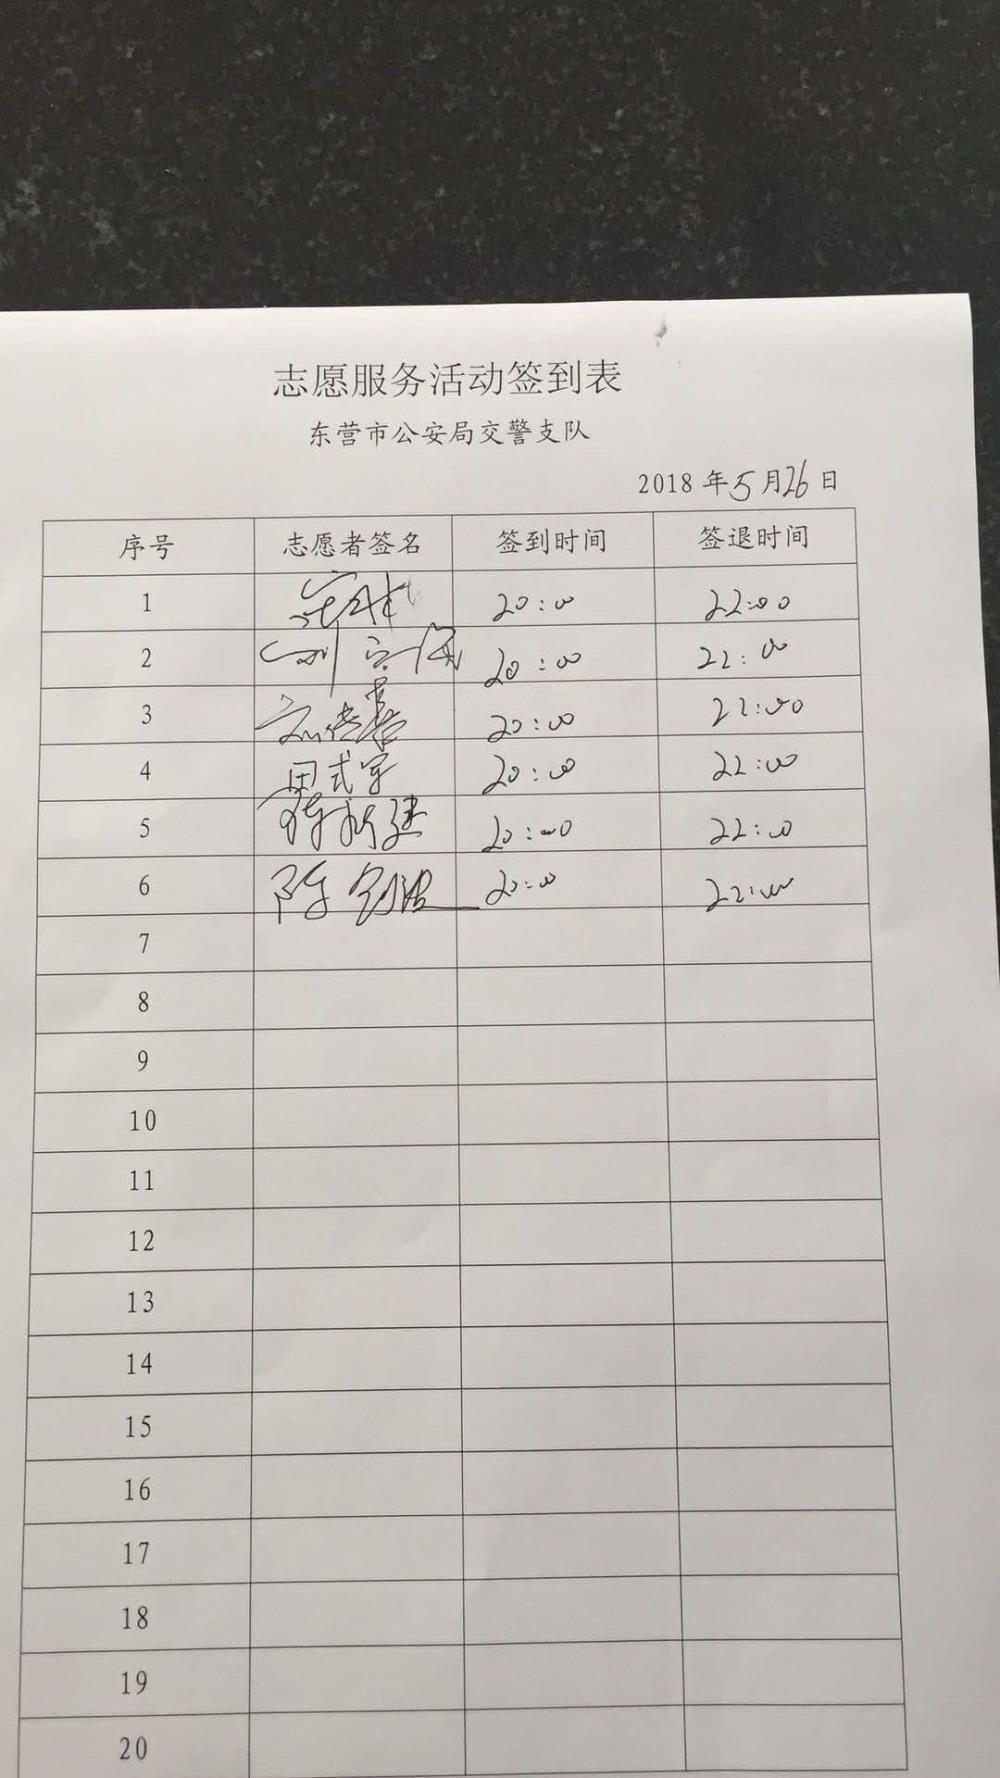 志愿服务活动签到表
东营市公安局交警支队
2018 年 5 月 26 日
序号 志愿者签名 签到时间 签退时间
1 20:00 22:00
2 20:00 22:00
3 20:00 22:00
4 田式宇 20:00 22:00
5 20:00 22:00
6 陈 20:00 22:00
7
8
9
10
11
12
13
14
15
16
17
18
19
20